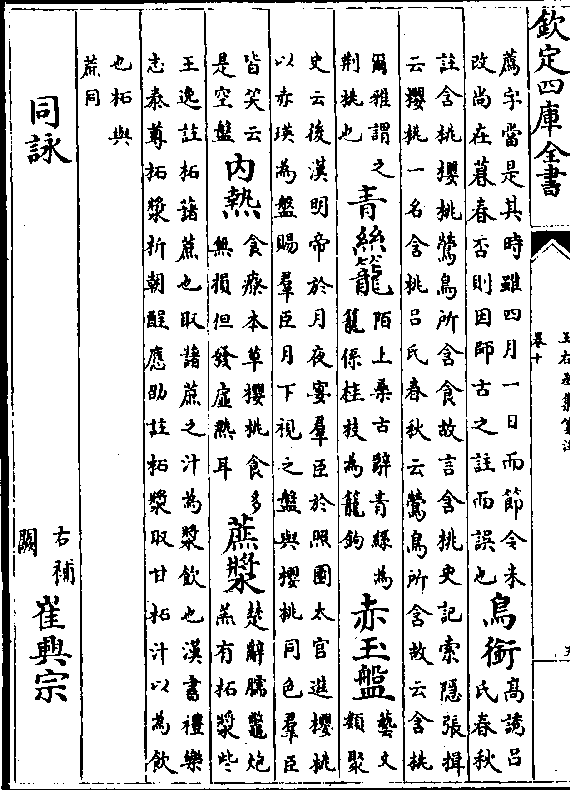 欽定四庫全書
王右丞集箋注
卷十
薦字當是其時雖四月一日而節令未
改尚在暮春否則因師古之註而誤也
鳥銜
高誘呂
氏春秋
註含桃櫻桃鶯鳥所含食故言含桃史記索隱張揖
云櫻桃一名含桃呂氏春秋云鶯鳥所含故云含桃
爾雅謂之
荆桃也
青絲籠
陌上桑古辭青絲為
籠係桂枝為籠鉤
赤玉盤
藝文
類聚
史云後漢明帝於月夜宴羣臣於照園太官進櫻桃
以赤瑛為盤賜羣臣月下視之盤與櫻桃同色羣臣
皆笑云
是空盤
內熱
食療本草櫻桃食多
無損但發虛熱耳
蔗漿
楚辭臑鼈炮
羔有拓漿些
王逸註拓藷蔗也取藷蔗之汁為漿飲也漢書禮樂
志泰尊拓漿析朝酲應劭註拓漿取甘拓汁以為飲
也拓與
蔗同
同詠
右補
闕
崔興宗